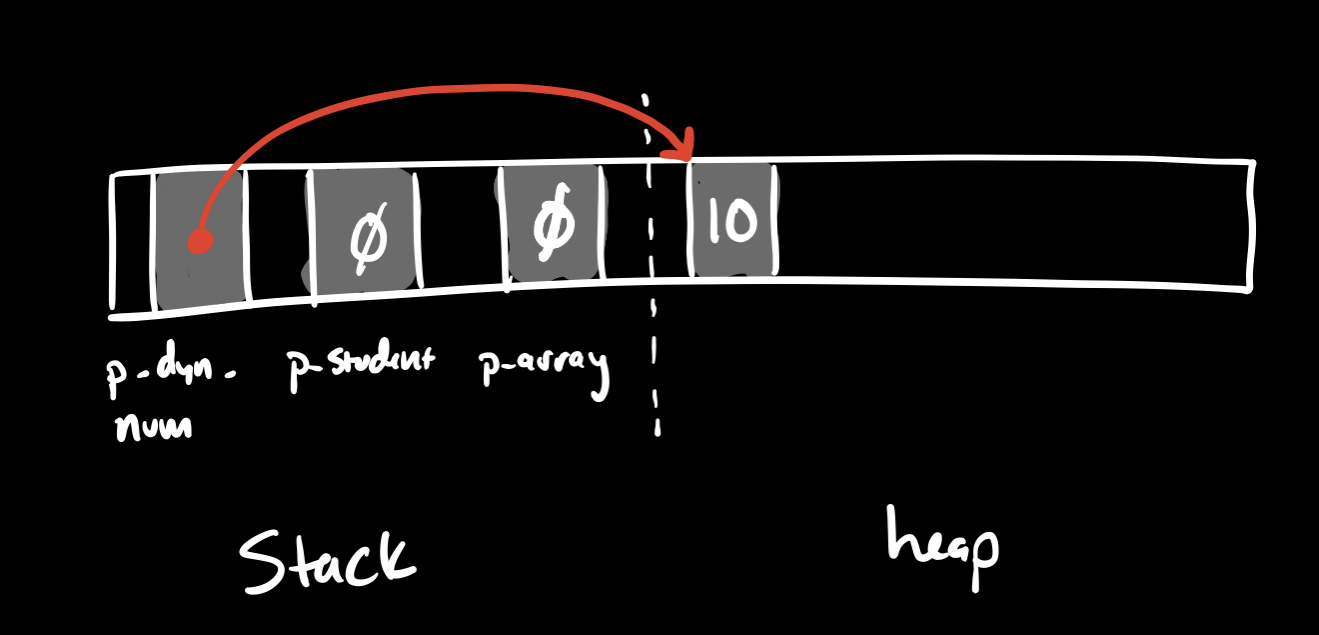 Ø Ø 10
p_dyn_ p_student p_array
num
Stack heap